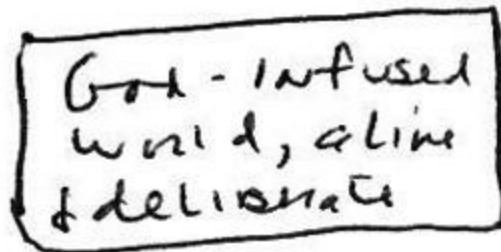 God-infused
world, alive
& deliberate